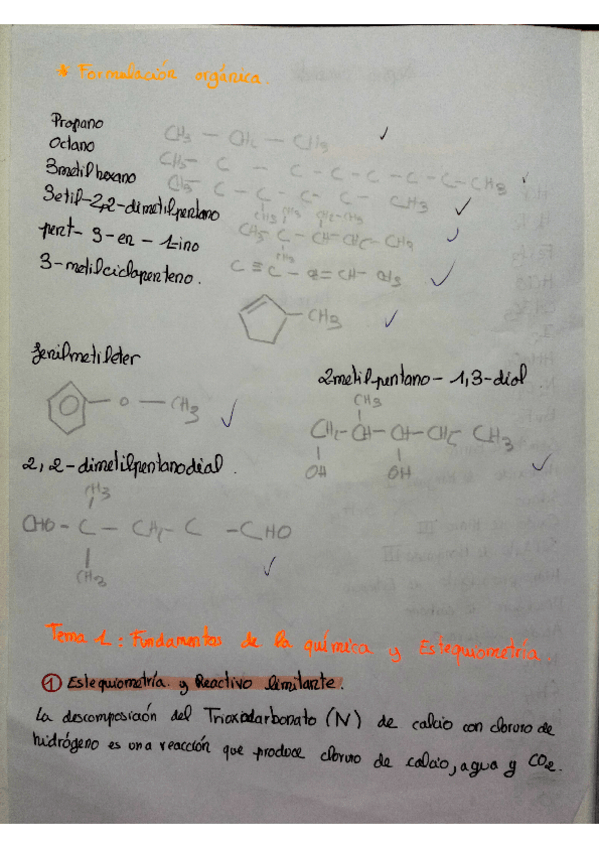 * Formulación orgánica.
Propano CH3 — CH2 — CH3 ✓
Octano CH3 — C — C — C — C — C — C — CH3 ✓
3metilhexano CH3 — C — C — C — C — CH3 ✓
CH3
3etil-2,2-dimetilpentano CH3 — C — CH — CH2 — CH3 ✓
CH3 CH2-CH3
CH3
pent-3-en-1-ino C ≡ C — C = CH — CH3 ✓
3-metilciclopenteno. — CH3 ✓
fenilmetileter
— O — CH3 ✓
2metilpentano-1,3-diol
CH3
CH2-CH-CH-CH2 CH3
OH OH ✓
2,2-dimetilpentanodial.
CH3
CHO — C — CH2 — C — CHO
CH3 ✓
Tema 1: Fundamentos de la química y Estequiometría
① Estequiometría y Reactivo limitante.
La descomposición del Trioxidocarbonato (IV) de calcio con cloruro de
hidrógeno es una reacción que produce cloruro de calcio, agua y CO2.